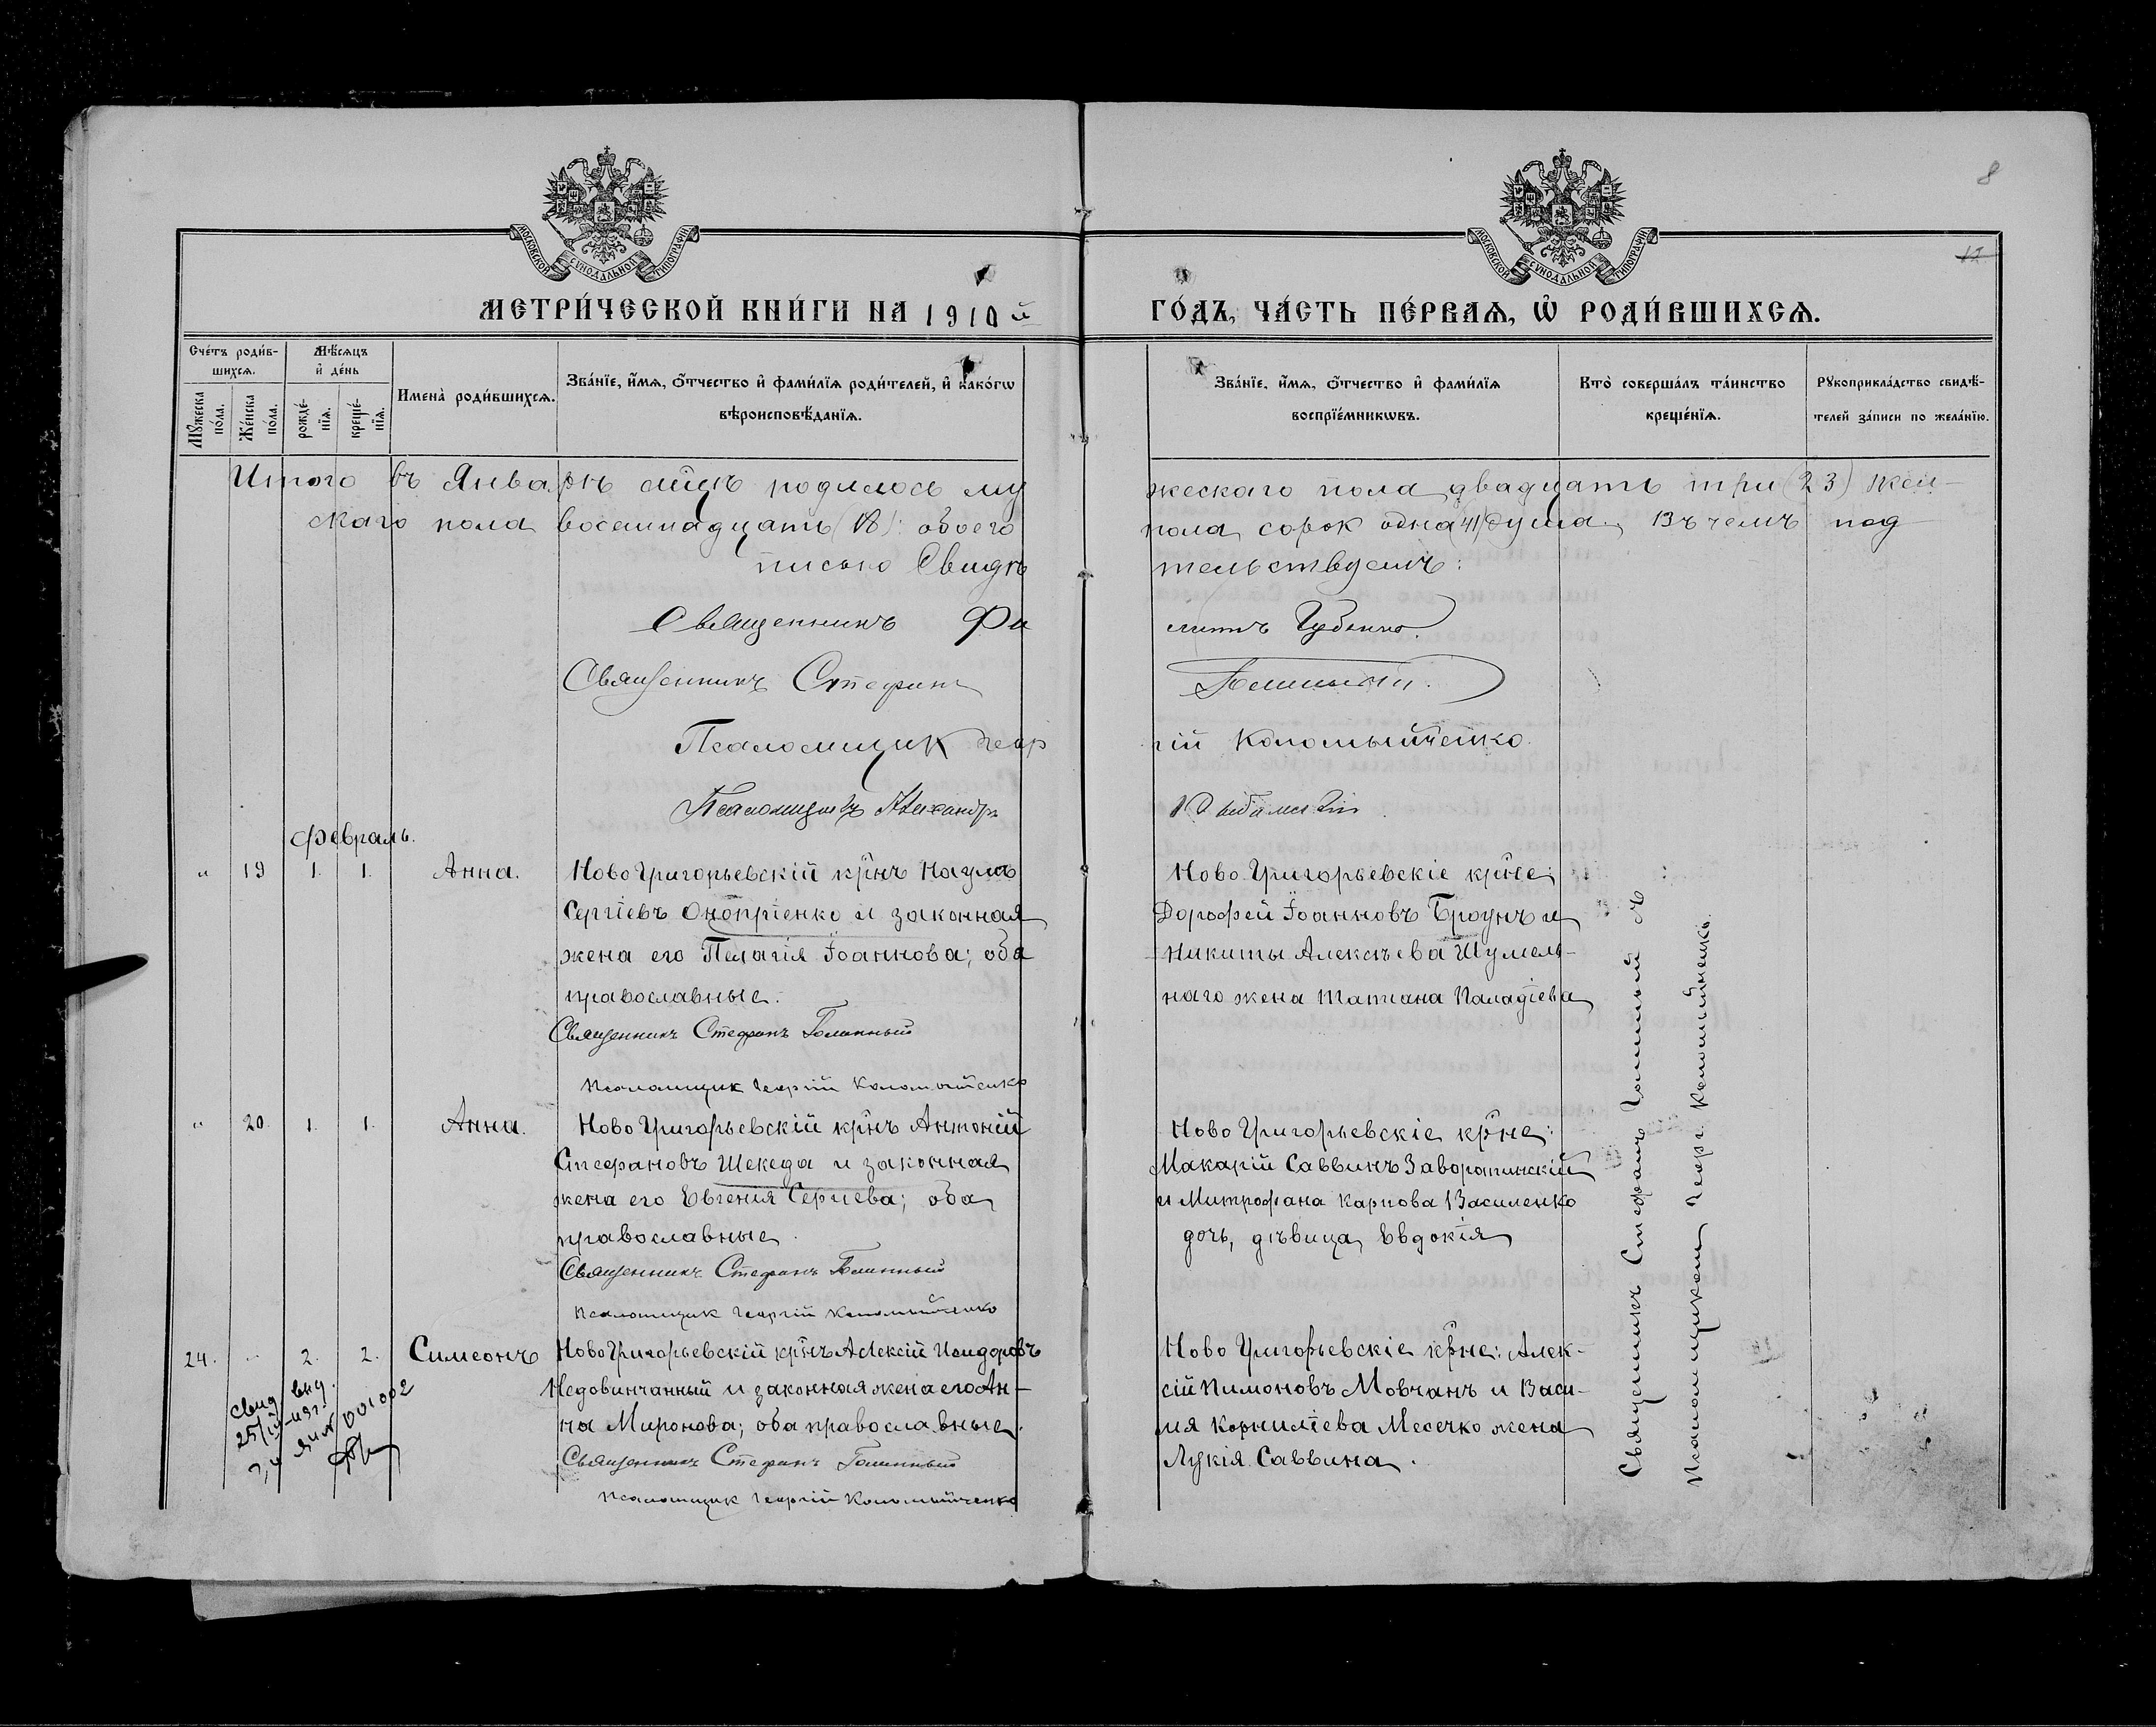 МОСКОВСКОЙ СУНОДАЛЬНОЙ ТИПОГРАФІИ
МОСКОВСКОЙ СУНОДАЛЬНОЙ ТИПОГРАФІИ
8
12
МЕТРИ́ЧЕСКОЙ КНИ́ГИ НА 1910 й ГО́ДЪ, ЧА́СТЬ ПЕ́РВАѦ, Ѡ РОДИ́ВШИХСѦ.
Сче́тъ роди́в-
шихсѧ.
Мѣ́сѧцъ
и҆ де́нь
Мꙋ́жеска
по́ла.
Же́нска
по́ла.
рожде́-
нїѧ.
креще́-
нїѧ.
Имена̀ роди́вшихсѧ.
Зва́нїе, и҆́мѧ, ѻ҆́тчество и҆ фами́лїѧ роди́телей, и҆ како́гѡ
вѣроисповѣ́данїѧ.
Зва́нїе, и҆́мѧ, ѻ҆́тчество и҆ фами́лїѧ
воспрїе́мникѡвъ.
Кто̀ соверша́лъ та́инство
креще́нїѧ.
Рꙋкоприкла́дство свидѣ́-
телей за́писи по жела́нїю.
Итого въ Январѣ мцѣ родилось му жескаго пола двадцать три (23) жен-
скаго пола восемнадцать (18): обоего пола сорок одна (41) душа. Въ чемъ под
писью Свидѣ тельствуемъ:
Священникъ Фи липпъ Губенко.
Священникъ Стефанъ
Псаломщик Геор гій Коломыйченко.
Псаломщикъ Александръ
Февраль.
" 19 1. 1. Анна.
НовоГригорьевскій крнъ Наумъ
Сергіевъ Оноприенко и законная
жена его Пелагія Іоаннова; оба
православные.
Священникъ Стефанъ
Псаломщик Георгій Коломыйченко
Ново Григорьевскіе крне:
Дорофей Іоанновъ Броунъ и
Никиты Алексѣева Шумель-
наго жена Татиана Паладіева
" 20. 1. 1. Анна.
НовоГригорьевскій крнъ Антоній
Стефановъ Шекеда и законная
жена его Евгенія Сергіева; оба
православные.
Священникъ Стефанъ
Псаломщик Георгій Коломыйченко
Ново Григорьевскіе крне:
Макарій Саввинъ
и Митрофана Карпова Василенко
дочь, дѣвица, Евдокія
24. " 2. 2. Симеонъ
НовоГригорьевскій крнъ Алексій Исидоровъ
Недовинчанный и законная жена его Ан-
на Миронова; оба православные.
Священникъ Стефанъ
Псаломщик Георгій Коломыйченко
Ново Григорьевскіе крне: Алек-
сій Пимоновъ Мовчанъ и Васи-
лія Корниліева Месечко жена
Лукія Саввина.
Свид выд.
001002
Священникъ Стефанъ съ
Псаломщиком Георг. Коломыйченко.